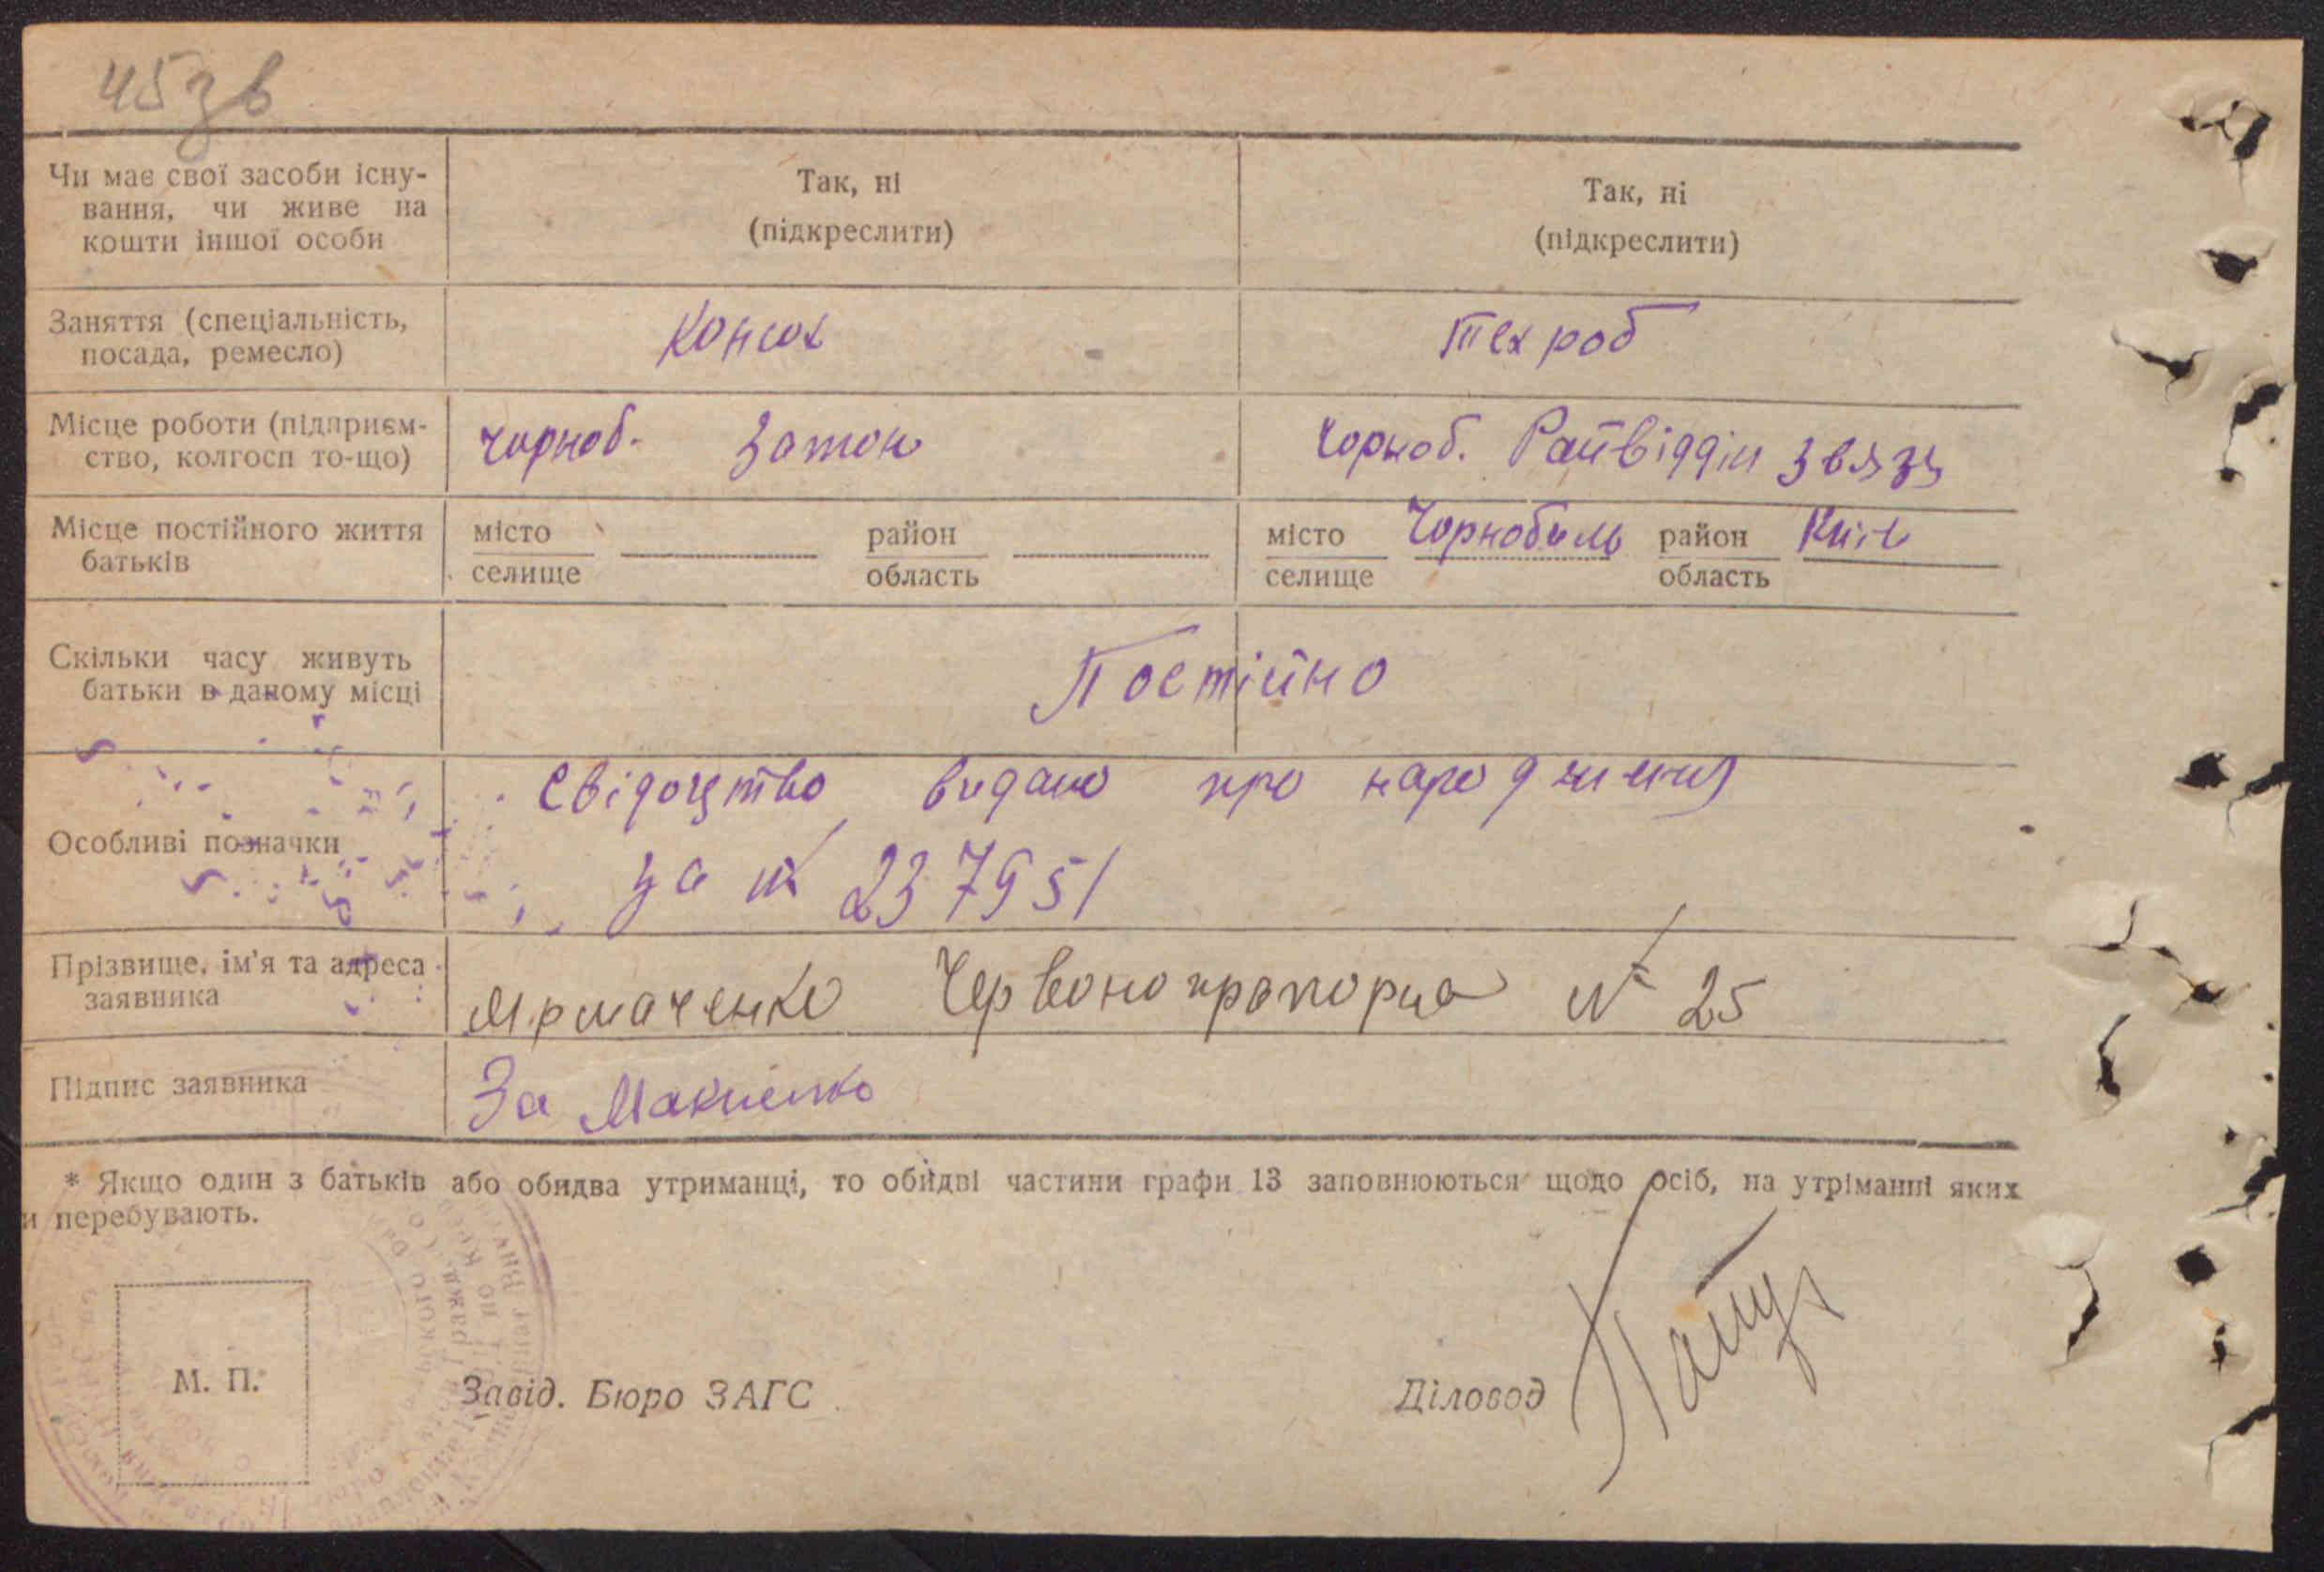 45зв
Чи має свої засоби існу-
вання, чи живе на
кошти іншої особи
Так, ні
(підкреслити)
Так, ні
(підкреслити)
Заняття (спеціальність,
посада, ремесло)
Конюх
Техроб
Місце роботи (підприєм-
ство, колгосп то-що)
Чорноб. Затон
Чорноб. Райвідділ Звязу
Місце постійного життя
батьків
місто район
селище область
місто Чорнобиль район Київ
селище область
Скільки часу живуть
батьки в даному місці
Постійно
Особливі позначки
Свідоцтво видано про народження
за № 237951
Прізвище, ім'я та адреса
заявника
Ярмаченко Червонопрапорна № 25
Підпис заявника
За
* Якщо один з батьків або обидва утриманці, то обидві частини графи 13 заповнюються щодо осіб, на утріманні яких
и перебувають.
М. П.
Завід. Бюро ЗАГС
Діловод